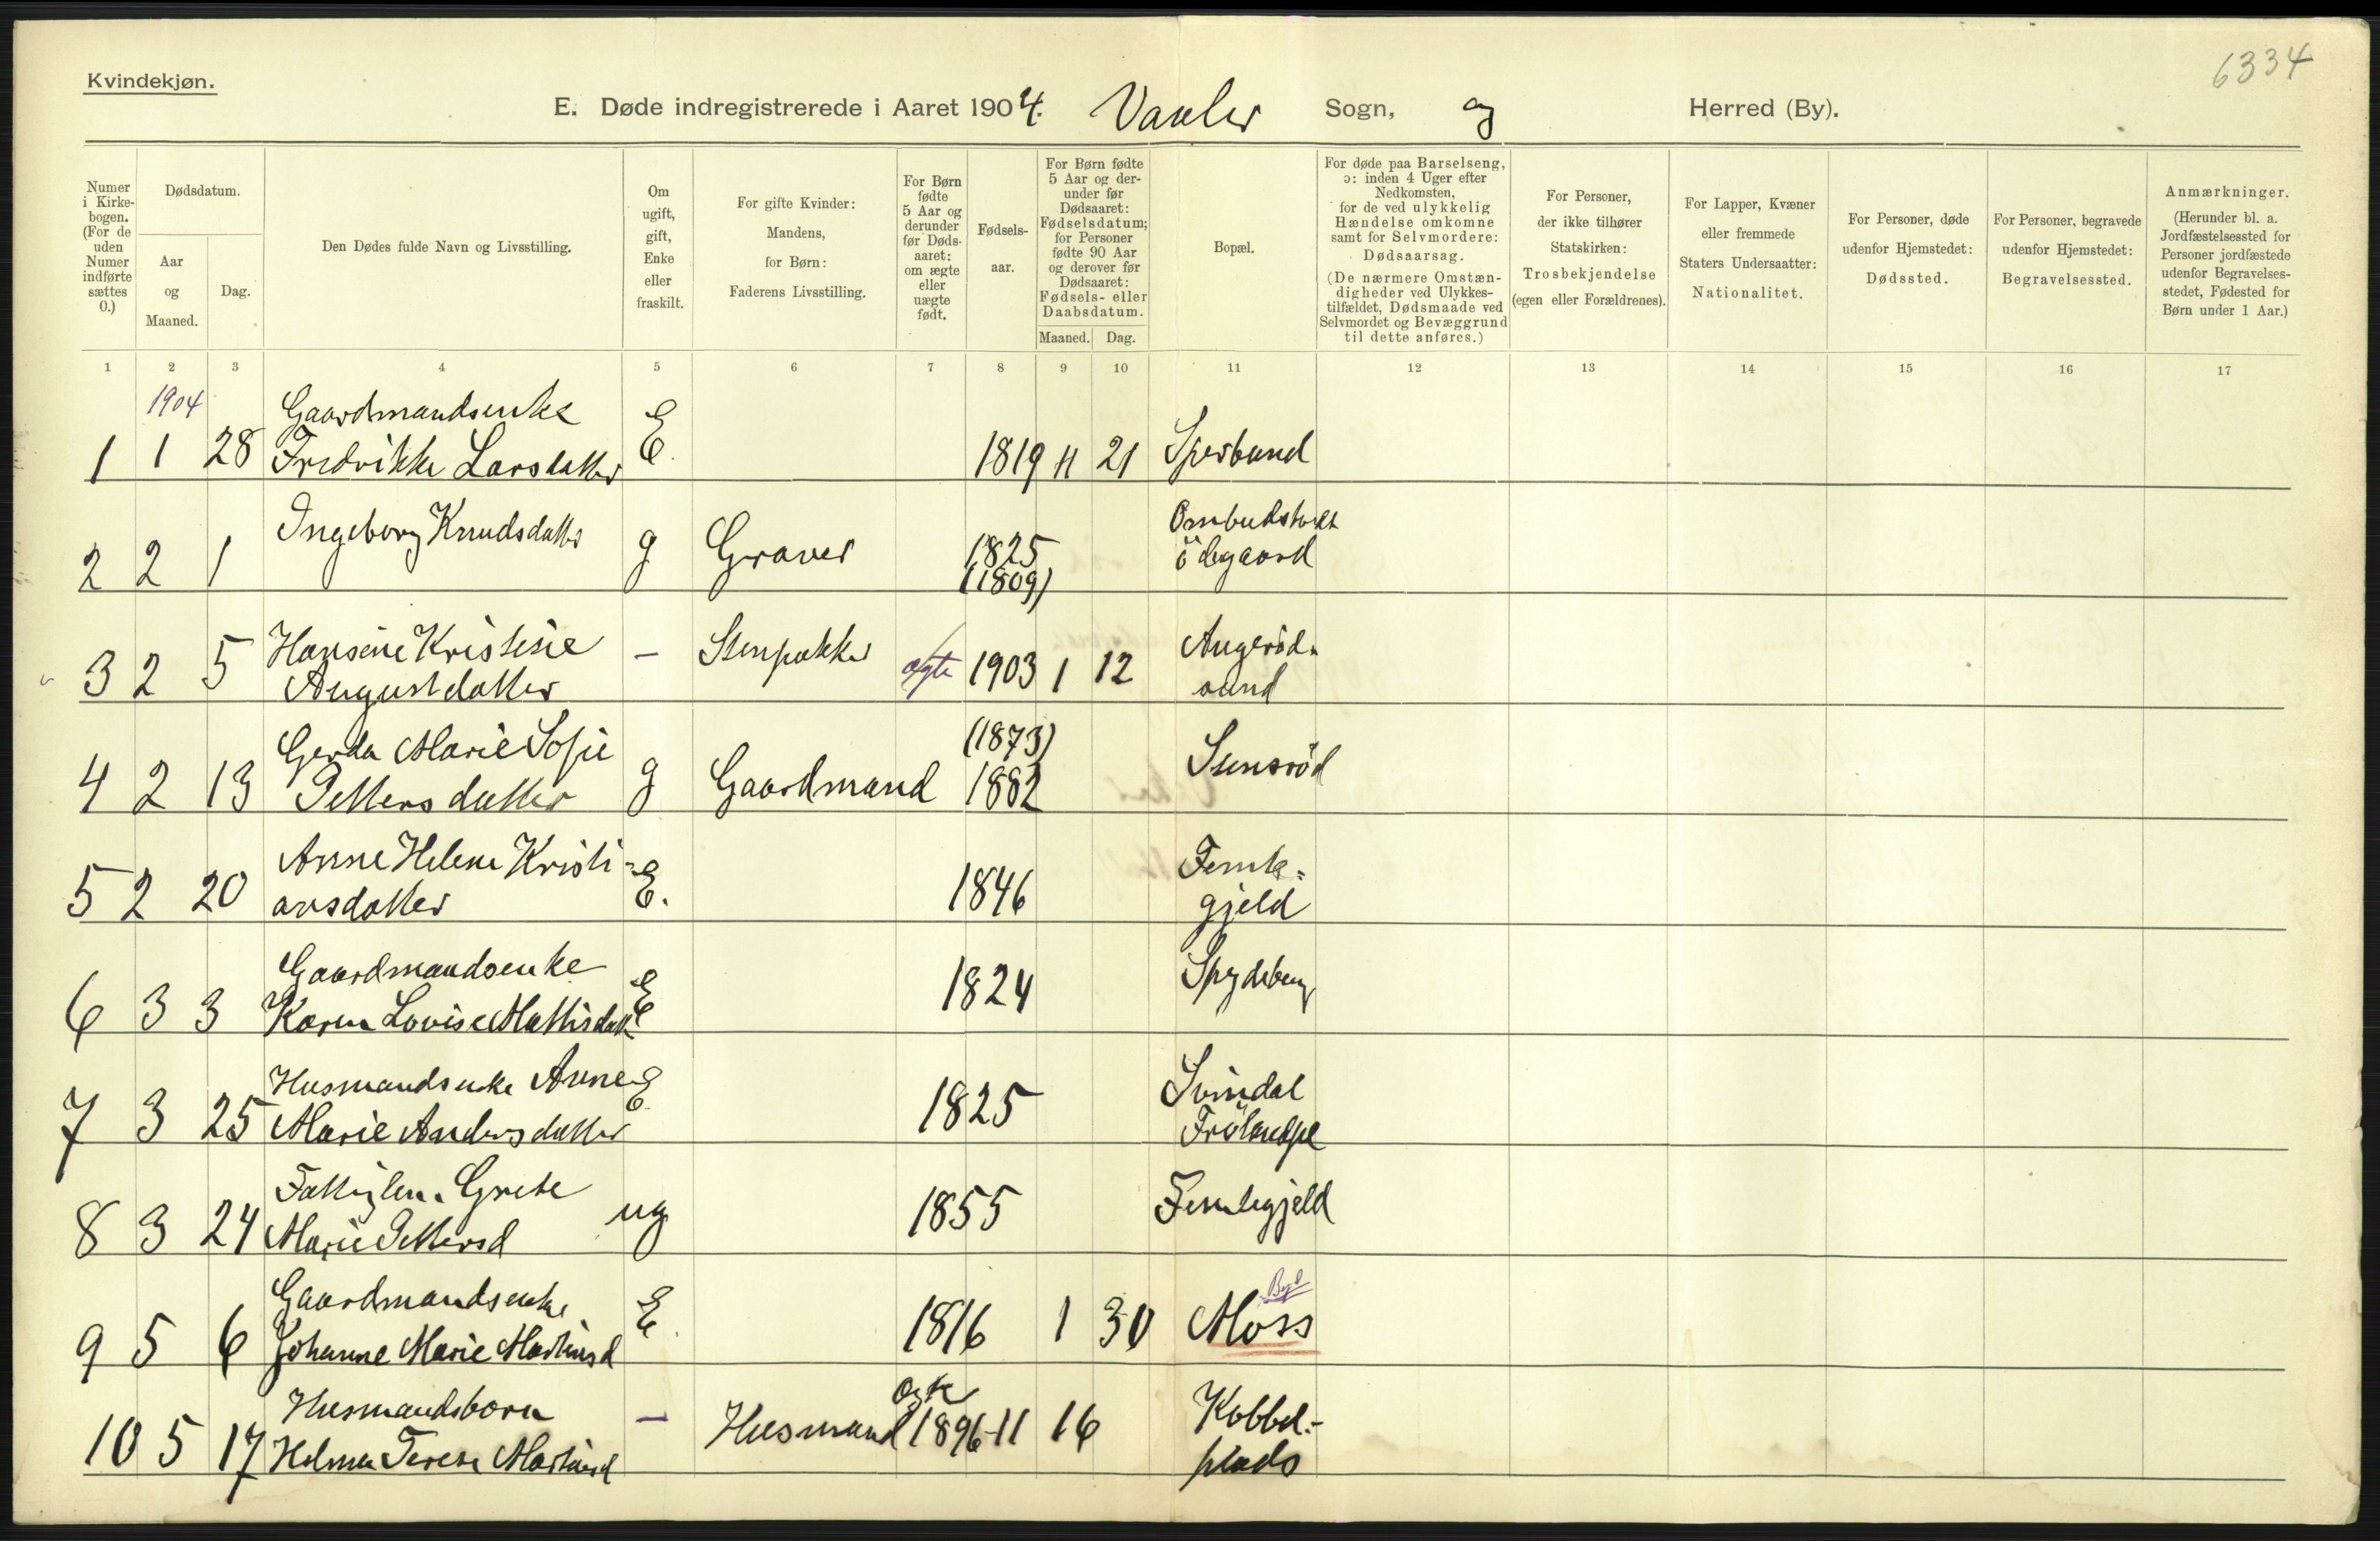 6334
Kvindekjøn.
E. Døde indregistrerede i Aaret 1904. Vaaler Sogn, og Herred (By).
Numer i Kirkebogen. (For de uden Numer indførte sættes 0.)
Dødsdatum.
Aar og Maaned.
Dag.
Den Dødes fulde Navn og Livsstilling.
Om ugift, gift, Enke eller fraskilt.
For gifte Kvinder: Mandens, for Børn: Faderens Livsstilling.
For Børn fødte 5 Aar og derunder før Dødsaaret: om ægte eller uægte født.
Fødselsaar.
For Børn fødte 5 Aar og derunder før Dødsaaret: Fødselsdatum; for Personer fødte 90 Aar og derover før Dødsaaret: Fødsels- eller Daabsdatum.
Maaned. Dag.
Bopæl.
For døde paa Barselseng, ɔ: inden 4 Uger efter Nedkomsten, for de ved ulykkelig Hændelse omkomne samt for Selvmordere: Dødsaarsag.
(De nærmere Omstændigheder ved Ulykkestilfældet, Dødsmaade ved Selvmordet og Bevæggrund til dette anføres.)
For Personer, der ikke tilhører Statskirken: Trosbekjendelse (egen eller Forældrenes).
For Lapper, Kvæner eller fremmede Staters Undersaatter: Nationalitet.
For Personer, døde udenfor Hjemstedet: Dødssted.
For Personer, begravede udenfor Hjemstedet: Begravelsessted.
Anmærkninger.
(Herunder bl. a. Jordfæstelsessted for Personer jordfæstede udenfor Begravelsesstedet, Fødested for Børn under 1 Aar.)
1 2 3 4 5 6 7 8 9 10 11 12 13 14 15 16 17
1904
Gaardmandsenke
1 1 28 Fredrikke Larsdatter E. 1819 11 21 Sperbund
Ingeborg Knudsdatter
2 2 1 g Graver 1825 (1809) ödegaard
3 2 5 Hansine Kristine – ægte 1903 1 12 Augeröd-
Augustdatter sand
Gerda Marie Sofie (1873) Stensröd
4 2 13 Pettersdatter g Gaardmand 1882
Anne Helene Kristi- Femte-
5 2 20 ansdatter E. 1846 gjeld
Gaardmandsenke Spydeberg
6 3 3 Karen Lovise Mathisdatt E 1824
Husmandsenke Anne E. Svindal
7 3 25 Marie Andersdatter 1825
Grete
8 3 24 Marie Pettersd ug 1855 Femtegjeld
Gaardmandsenke Byd
9 5 6 Johanne Marie Martinsd E. 1816 1 30 Moss
Husmandsbarn Ægte Kobbel-
10 5 17 Helma Terese Martinsd – Husmand 1896 11 16 plads